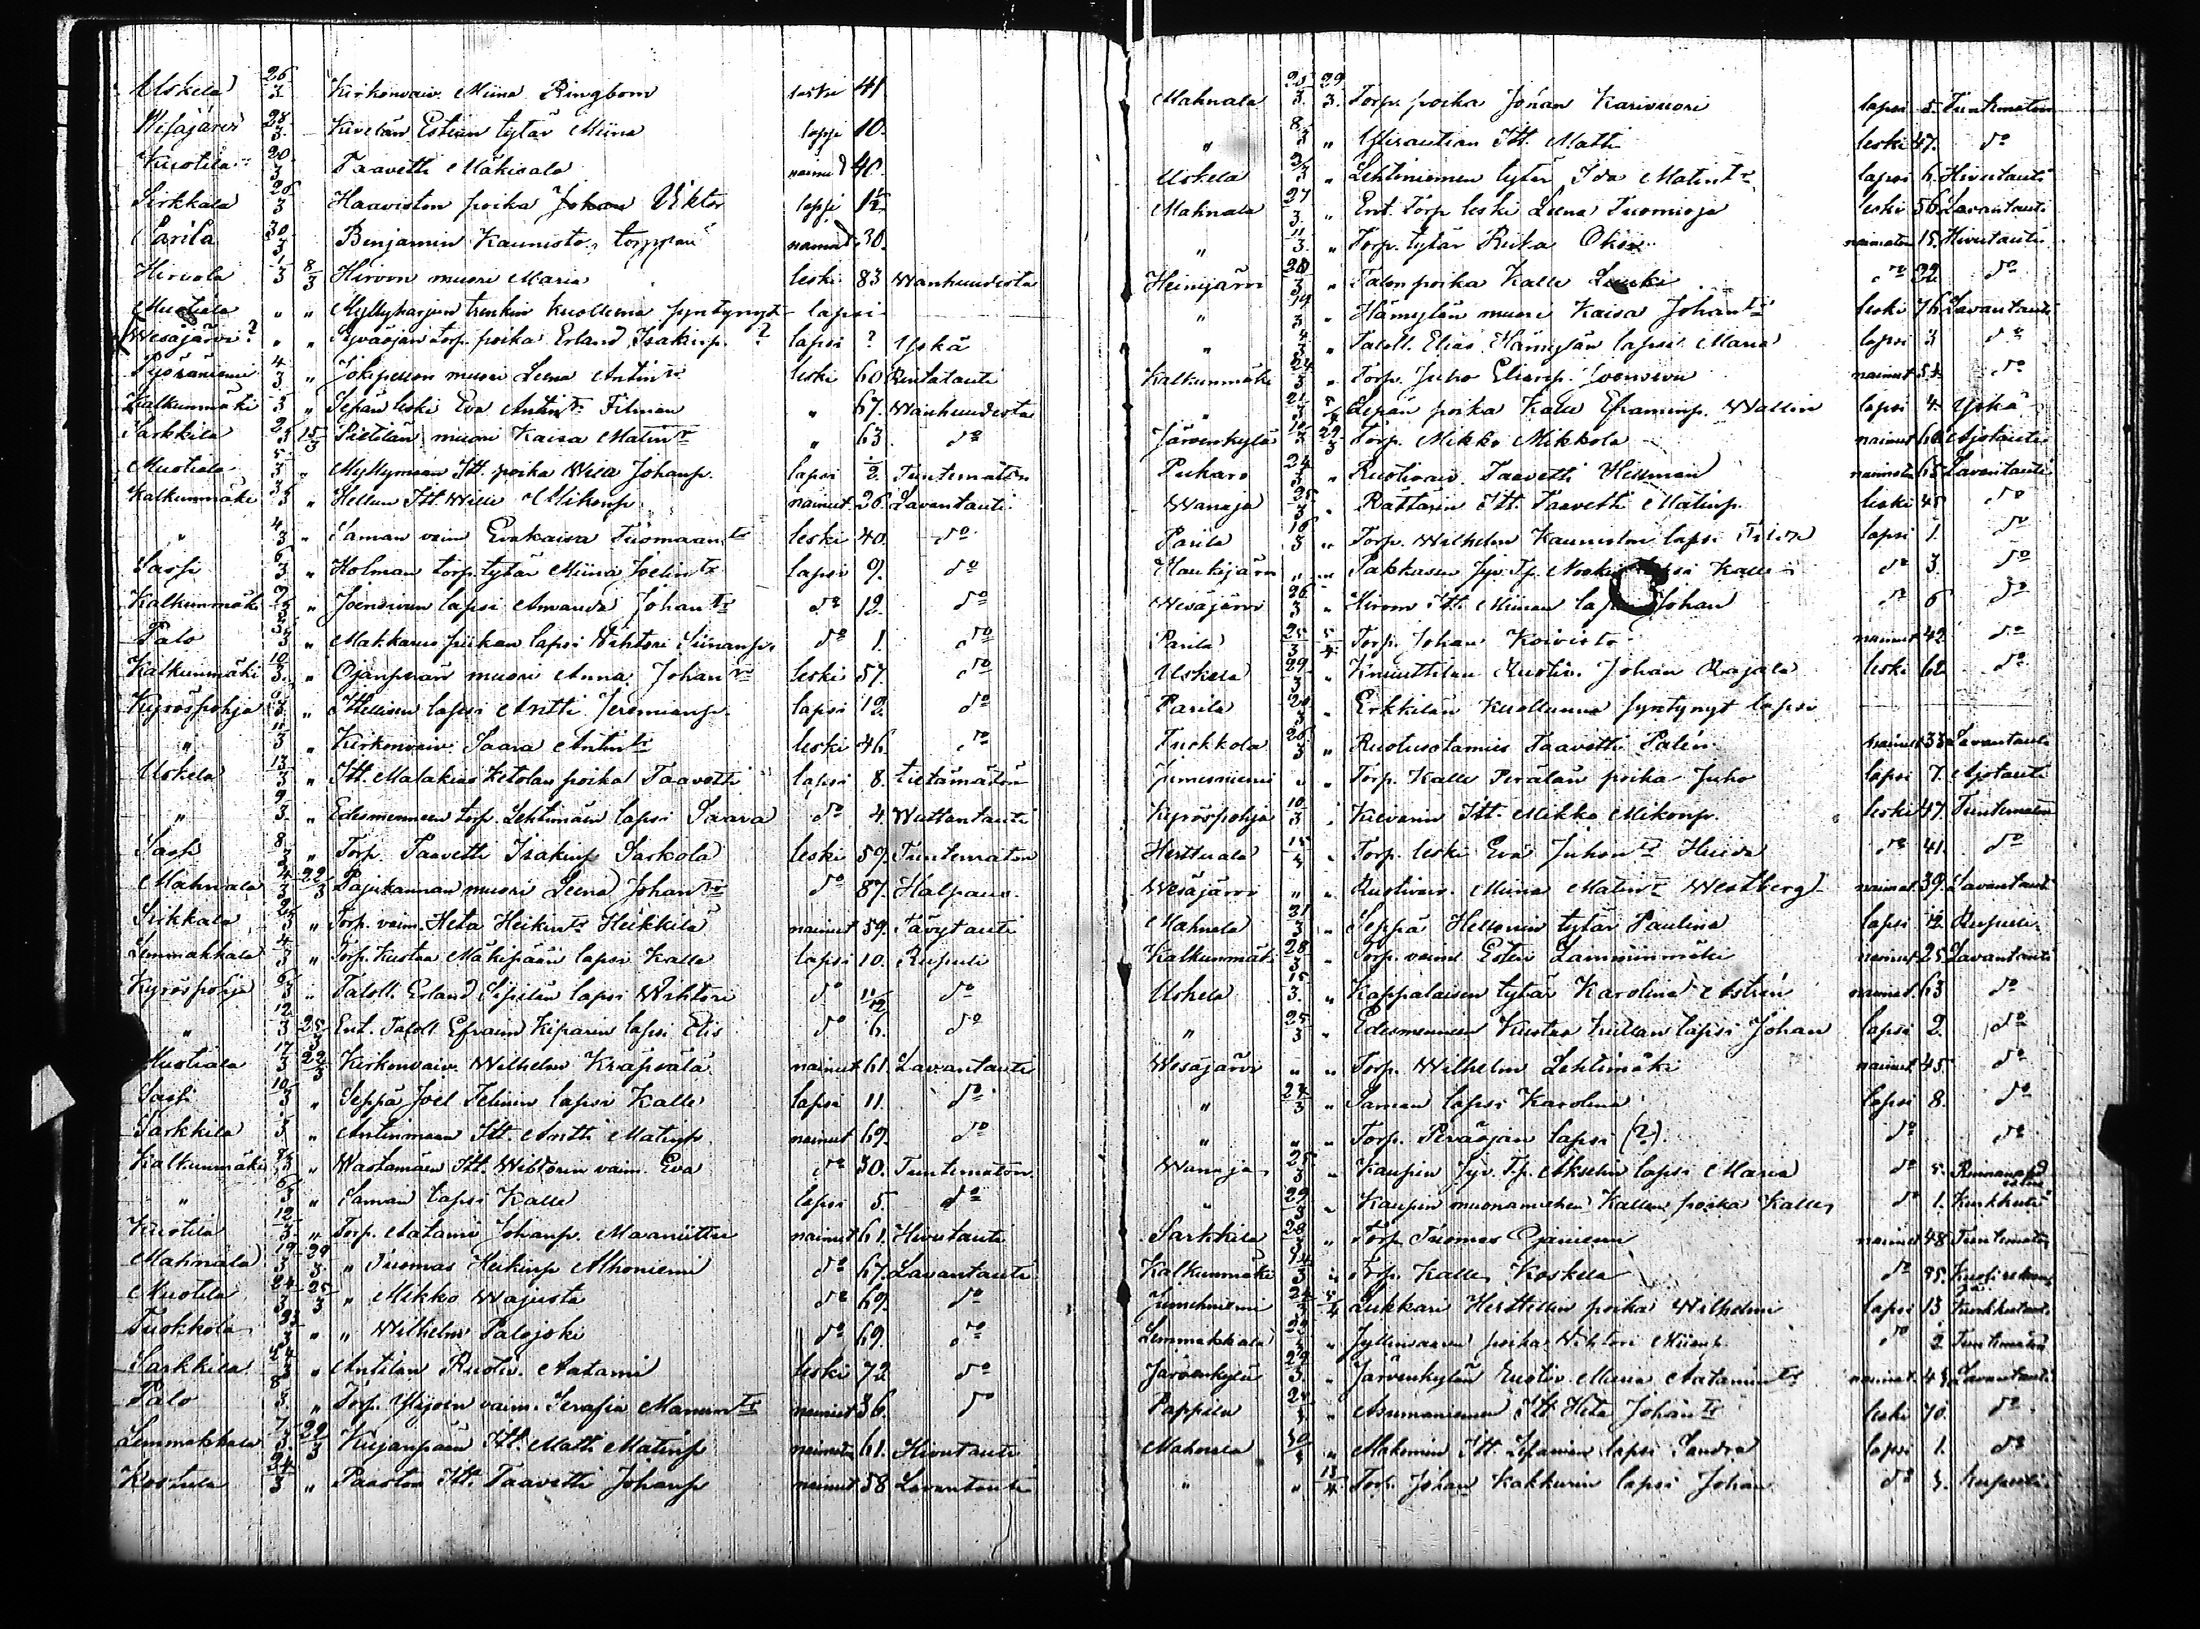 Uskela 26/3 Kirkonvaiv. Miina Ringbom leski 41
Wesajärvi 28/3 Kivelän Esterin tytär Miina lapsi 10.
Kuotila 20/3 Taavetti Mäkisalo nainut 40.
Sirkkala 26/3 Haaviston poika Johan Viktor lapsi 1½
Parila 30/3 Benjamin Kaunisto, torppari nainut 30.
Hirvola 1/3 8/3 Hirvon muori Maria leski 83 Wanhuudesta
Muotiala " " Myllyharjun trenkin kuollunna syntynyt lapsi
Wesajärvi ? " " Peräojan torp. poika Erland Isakinp. ? lapsi ? Yskä
Pyöräniemi 4/3 " Jokipellon muori Leena Antintr leski 60 Rintatauti
Kalkunmäki /3 " Sepän leski Eva Antintr Filman " 67. Wanhuudesta
Sarkkila 2/3 15/3 Sietilän muori Kaisa Matintr " 63. do
Muotiala 5/3 " Myllymaan Itt. poika Wille Johanp. lapsi ½ Tuntematon
Kalkunmäki /3 " Hellun Itt. Wille Mikonp. nainut 26. Lavantauti
" 4/3 " Saman vaim Evakaisa Tuomaantr leski 40. do
Sasi 6/3 " Kolman torp. tytär Miina Joelintr lapsi 9. do
Kalkunmäki 7/3 " Joensuun lapsi Amanda Johantr do 12. do
Palo /3 " Makkarus piikan lapsi Wihtori Siinanp. do 1. do
Kalkunmäki 10/3 " Ojanperän muori Anna Johantr leski 57. do
Kyröspohja /3 " Itellisen lapsi Antti Jeremianp. lapsi 12. do
" 11/3 " Kirkonvaiv. Saara Antintr leski 46. do
Uskela 13/3 " Itt. Malakias Ketolan poika Taavetti lapsi 8. tietämätön
" 9/3 " Edesmenneen torp. Lehtimäen lapsi Saara do 4. Wattantauti
Sasi 8/3 " Torp. Taavetti Isakinp Sarkola leski 59. Tuntematon
Mahnala 4/3 22/3 Pajukannan muori Leena Johantr do 87. Halpaus
Sirkkala 25/3 " Torp. vaim. Heta Heikintr Heikkilä nainut 59. Tävytauti
Lemmakkala 4/3 " Torp. Kustaa Mäkipään lapsi Kalle lapsi 10. Rupuli
Kyröspohja 6/3 " Taloll. Erland Sipilän lapsi Wihtori do 11/12 do
" 12/3 25/3 Ent. Taloll Efraim Kiparin lapsi Elis do 6. do
Muotiala 17/3 22/3 Kirkonvaiv. Wilhelm Kräpsälä nainut 61. Lavantauti
Sasi 10/3 " Seppä Joel Felinin lapsi Kalle lapsi 11. do
Sarkkila /3 " Antinmaan Itt. Antti Matinp. nainut 69. do
Kalkunmäki 8/3 " Wastamäen Itt. Wihtorin vaim. Eva do 30. Tuntematon
" 6/3 " Saman lapsi Kalle lapsi 5. do
Kuotila 12/3 " Torp. Aatami Johanp. Maaniittu nainut 61. Hivutauti
Mahnala 19/3 29/3 " Tuomas Heikinp Alhoniemi do 67. Lavantauti
Muotila 24/3 25/3 " Mikko Wajusta do 69. do
Tuokkola 23/3 " " Wilhelm Palojoki do 69. do
Sarkkila 24/3 " Antilan Ruotiv. Aatami leski 72 do
Palo 8/3 " Torp. Ylijoen vaim. Serafia Manuntr nainut 36. do
Lemmakkala 7/3 29/3 Kujanpään Itt. Matti Matinp naimatoin 61. Hivutauti
Kostula 24/3 " Paaston Itt. Taavetti Johanp nainut 58 Lavantauti
Mahnala 25/3 29/3 Torp. poika Johan Karivuori lapsi 5. Tuntematon
" 8/3 " Ylisautian Itt. Matti leski 47. do
Uskela 25/3 " Lehtiniemen tytär Ida Matintr lapsi 6. Hivutauti
Mahnala 27/3 " Ent. Torp leski Leena Tuomioja leski 56. Lavantauti
" 11/3 " Torp. tytär Riika naimaton 15. Hivutauti
Heinijärvi 28/3 " Talon poika Kalle do 32. do
" 14/3 " Hämylän muori Kaisa Johantr leski 76. Lavantauti
" 4/3 " Taloll. Elias Hämylän lapsi Maria lapsi 3 do
Kalkunmäki 24/3 " Torp. Juho Eliaenp. Joensuu nainut 54. do
" 21/3 Sepän poika Kalle Eframinp. Wallin lapsi 4. Yskä
Järvenkylä 12/3 29/3 Torp. Mikko Mikkola nainut 66 Ajotauti
Puharo 24/3 " Ruotivaiv. Taavetti Hillman naimaton 65. Lavantauti
Wanaja 25/3 " Rättärin Itt. Taavetti Matinp. leski 45 do
Parila 16/3 " Torp. Wilhelm Kauniston lapsi lapsi 1. do
Haukijärvi " " Pakkasen Kalle do 3. do
Wesajärvi 26/3 " Hirvon Itt. Miinan lapsi Johan do 6 do
Parila 25/3 5/4 Torp. Johan Koivisto nainut 42. do
Uskela 29/3 " Knuuttilan Ruotiv. Johan Rajala leski 62 do
Parila 24/3 " Erkkilän kuollunna syntynyt lapsi
Tuokkola 26/3 " Ruotusotamies Taavetti Palén nainut 33 Lavantauti
Jumesniemi " " Torp. Kalle Perälän poika Juho lapsi 7. Ajotauti
Kyröspohja 10/3 " Kivarin Itt. Mikko Mikonp. leski 47. Tuntematon
Herttuala 15/3 " Torp. leski Eva Juhontr Huida do 41. do
Wesajärvi " " Ruotivaiv. Miina Matintr Westberg nainut 39. Lavantauti
Mahnala 21/3 " Seppä Hellonin tytär Paulina lapsi ½ Rupuli
Kalkunmäki 28/3 " Torp. vaim. Esteri Lamminmäki nainut 25. Lavantauti
Uskela 15/3 " Kappalaisen tytär Karolina Astrén naimat. 63 do
" 25/3 " Edesmenneen Kustaa lapsi Johan lapsi 2. do
Wesajärvi " " Torp. Wilhelm Lehtimäki nainut 45. do
" 27/3 " Saman lapsi Karolina lapsi 8. do
" " " Torp. Peräojan lapsi (?) do do
Wanaja 25/3 " Kaupin Jyv. Tp. Akselin lapsi Maria do 5.
" 29/3 " Kaupin muonamiehen Kallen poika Kalle do 1. Kurkkutauti
Sarkkila 28/3 " Torp. Tuomas Ojaniemi nainut 48 Tuntematon
Kalkunmäki 14/3 " Torp. Kalle Koskela do 85.
Jumesniemi 24/3 5/4 Lukkari Herttellin poika Wilhelmi lapsi 13 Kurkkutauti
Lemmakkala " Jyllinsaaren poika Wihtori do 2 Tuntematon
Järvenkylä 29/3 " Järvenkylän Ruotiv. Maria Aatamintr Lavantauti
Pappila 28/3 " Asumaniemen Itt Heta Johantr leski 70. do
Mahnala 30/3 " Makonin Itt. lapsi Sandra lapsi 1. do
" " 13/4 Torp. Johan Kakkurin lapsi Johan do 3. Rupuli